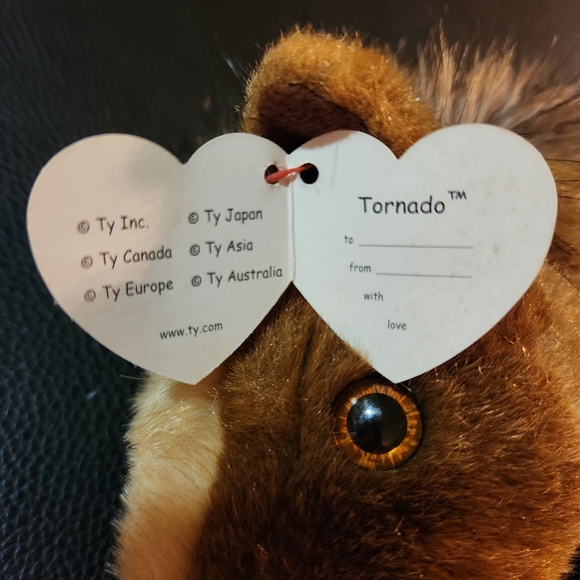 © Ty Inc.
© Ty Canada
© Ty Europe
© Ty Japan
© Ty Asia
© Ty Australia
www.ty.com
Tornado™
to
from
with
love